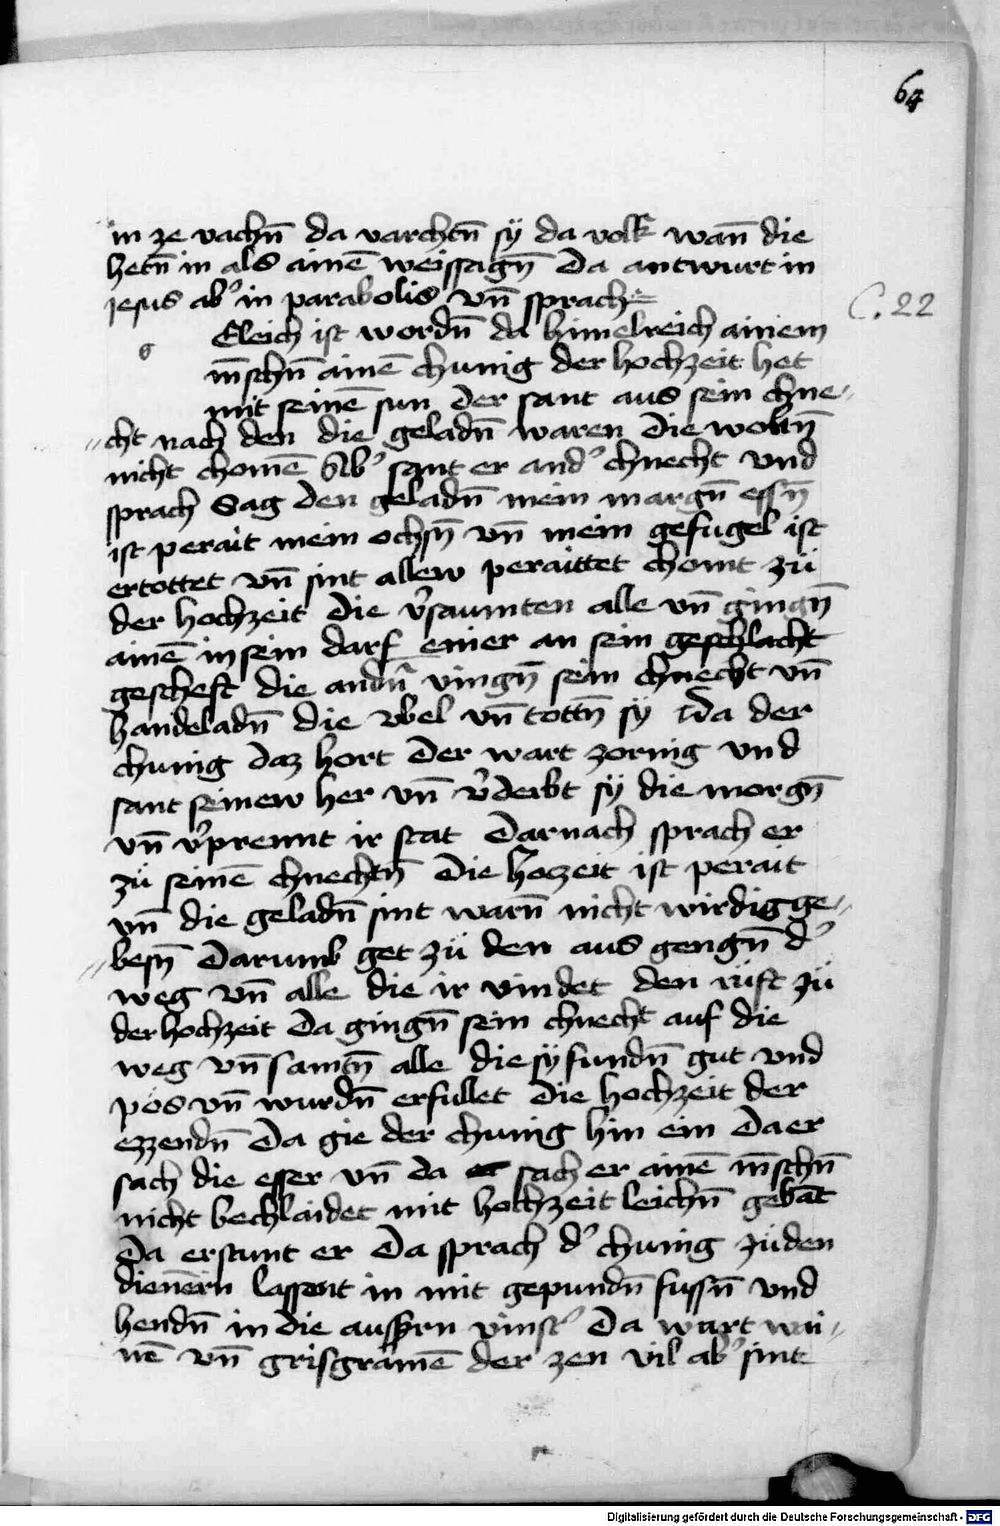 64
in ze vachn̄ da varchtn̄ sÿ da volk wan̄ die
hetn̄ in als ainē weissagn̄ Da antwurt in
jesus ab̾ in parabolis vn̄ sprach
C. 22
g
Gleich ist wordn̄ da himelreich ainem
m̄schn̄ ainē chunig der hochzeit het
mit seinē sun Der sant aus sein chne〃
〃cht nach den die geladn̄ waren Die woltn̄
nicht chomē Ab̾ sant er and̾ chnecht vnd
sprach Sag den geladn̄ mein margn̄ essn̄
ist perait mein ochsn̄ vn̄ mein gefugel ist
ertottet vn̄ sint allew peraittet chomt zü
der hochzeit Die v̾saumten alle vn̄ gingn̄
ainē in sein darf einer an sein geschlacht
gescheft die andn̄ vingn̄ sein chnecht vn̄
handeladn̄ die vbel vn̄ tottn̄ sy Da der
chunig daz hort Der wart zornig vnd
sant seinew her vn̄ v̾derbt sÿ die morgn̄
vn̄ v̾prennt ir stat Darnach sprach er
zü seinē chnechtn̄ Die hozeit ist perait
vn̄ die geladn̄ sint warn̄ nicht wirdig ge〃
〃besn̄ Darumb get zü den aus gengn̄ d̾
weg vn̄ alle die ir vindet den rüft zü
der hochzeit Da gingn̄ sein chnecht auf die
weg vn̄ samtn̄ alle die sÿ fundn̄ gut vnd
pös vn̄ wurdn̄ erfullet Die hochzeit der
ezzendn̄ Da gie der chunig hin ein Da er
sach die esser vn̄ da er sach er ainē m̄schn̄
nicht bechlaidet mit hochzeit leichn̄ gebāt
Da erstunt er Da sprach d̾ chunig zü den
dienern lassent in mit gepundn̄ fussn̄ vnd
hendn̄ in die aussrn vinst̾ Da wart wai〃
nē vn̄ grisgramē der zen vil ab̾ sint
Digitalisierung gefördert durch die Deutsche Forschungsgemeinschaft - DFG